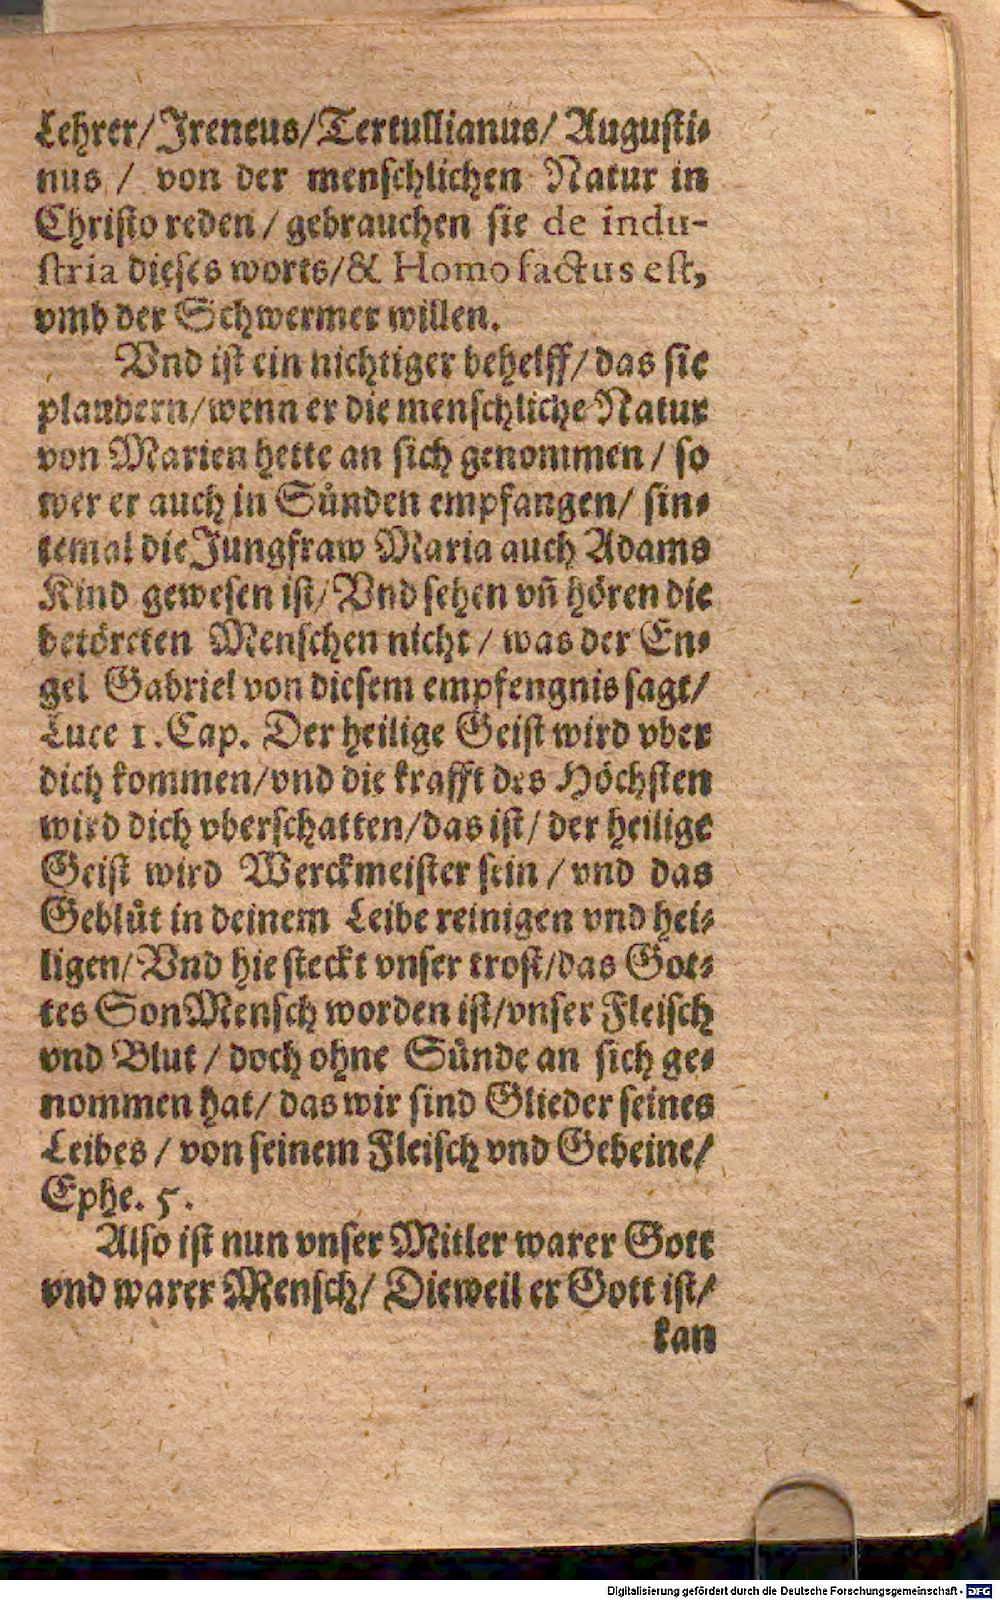 Lehrer/Jreneus/Tertullianus/ Augusti⸗
nus / von der menschlichen Natur in
Christo reden / gebrauchen sie de indu-
stria dieses worts/& Homo factus est,
vmb der Schwermer willen.
Vnd ist ein nichtiger behelff/ das sie
plaudern/wenn er die menschliche Natur
von Marien hette an sich genommen / so
wer er auch in Sünden empfangen/ sin⸗
temal die Jungfraw Maria auch Adams
Kind gewesen ist/ Vnd sehen vñ hören die
betörcten Menschen nicht / was der En⸗
gel Gabriel von diesem empfengnis sagt/
Luce 1. Cap. Der heilige Geist wird vber
dich kommen/vnd die krafft des Höchsten
wird dich vberschatten/das ist/ der heilige
Geist wird Werckmeister sein / vnd das
Geblüt in deinem Leibe reinigen vnd hei⸗
ligen/ Vnd hie steckt vnser trost/das Got⸗
tes Son Mensch worden ist/vnser Fleisch
vnd Blut / doch ohne Sünde an sich ge⸗
nommen hat/ das wir sind Glieder seines
Leibes / von seinem Fleisch vnd Gebeine/
Ephe. 5.
Also ist nun vnser Mitler warer Gott
vnd warer Mensch/ Dieweil er Gott ist/
kan
Digitalisierung gefördert durch die Deutsche Forschungsgemeinschaft - DFG